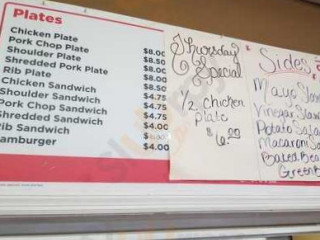 Plates
Chicken Plate $8.00
Pork Chop Plate $8.50
Shoulder Plate $8.00
Shredded Pork Plate $8.00
Rib Plate $8.50
Chicken Sandwich $4.75
Shoulder Sandwich $4.75
Pork Chop Sandwich $4.75
Shredded Sandwich $4.00
Rib Sandwich
Hamburger $4.00
Thursday
Special
1/2 chicken
plate
$6.00
Sides
Mayo Slaw
Vinegar Slaw
Potato Salad
Macaroni Sa
Baked Bea
Green B